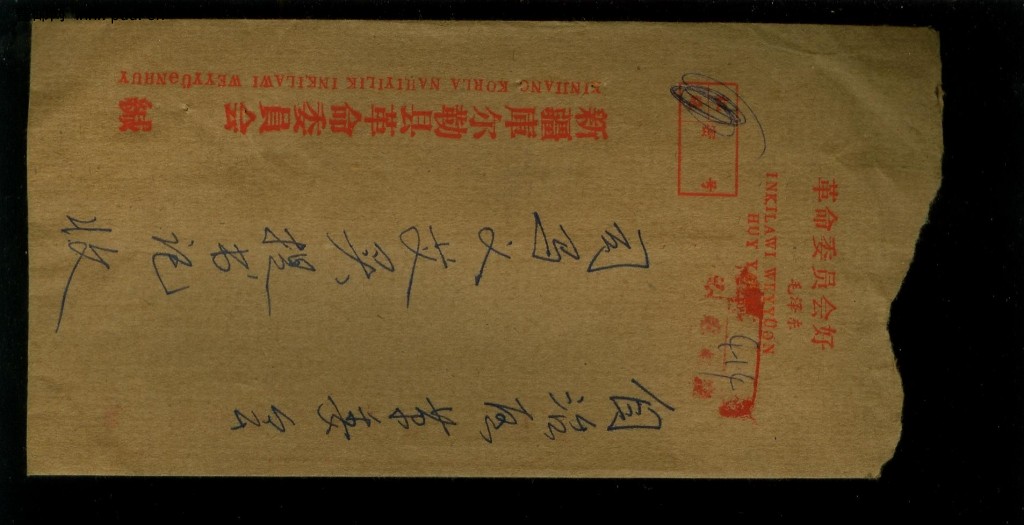 革命委员会好
毛泽东
INKILAWI WEYYÜƏN
自治区革委会
司马义艾买提书记
收
新疆库尔勒县革命委员会 缄
XINJIANG KORLA NAHIYILIK INKILAWI WEYYÜƏNHUY
号